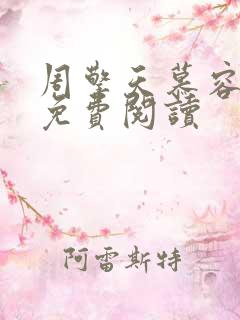 周擎天慕容
免費閱讀
阿雷斯特